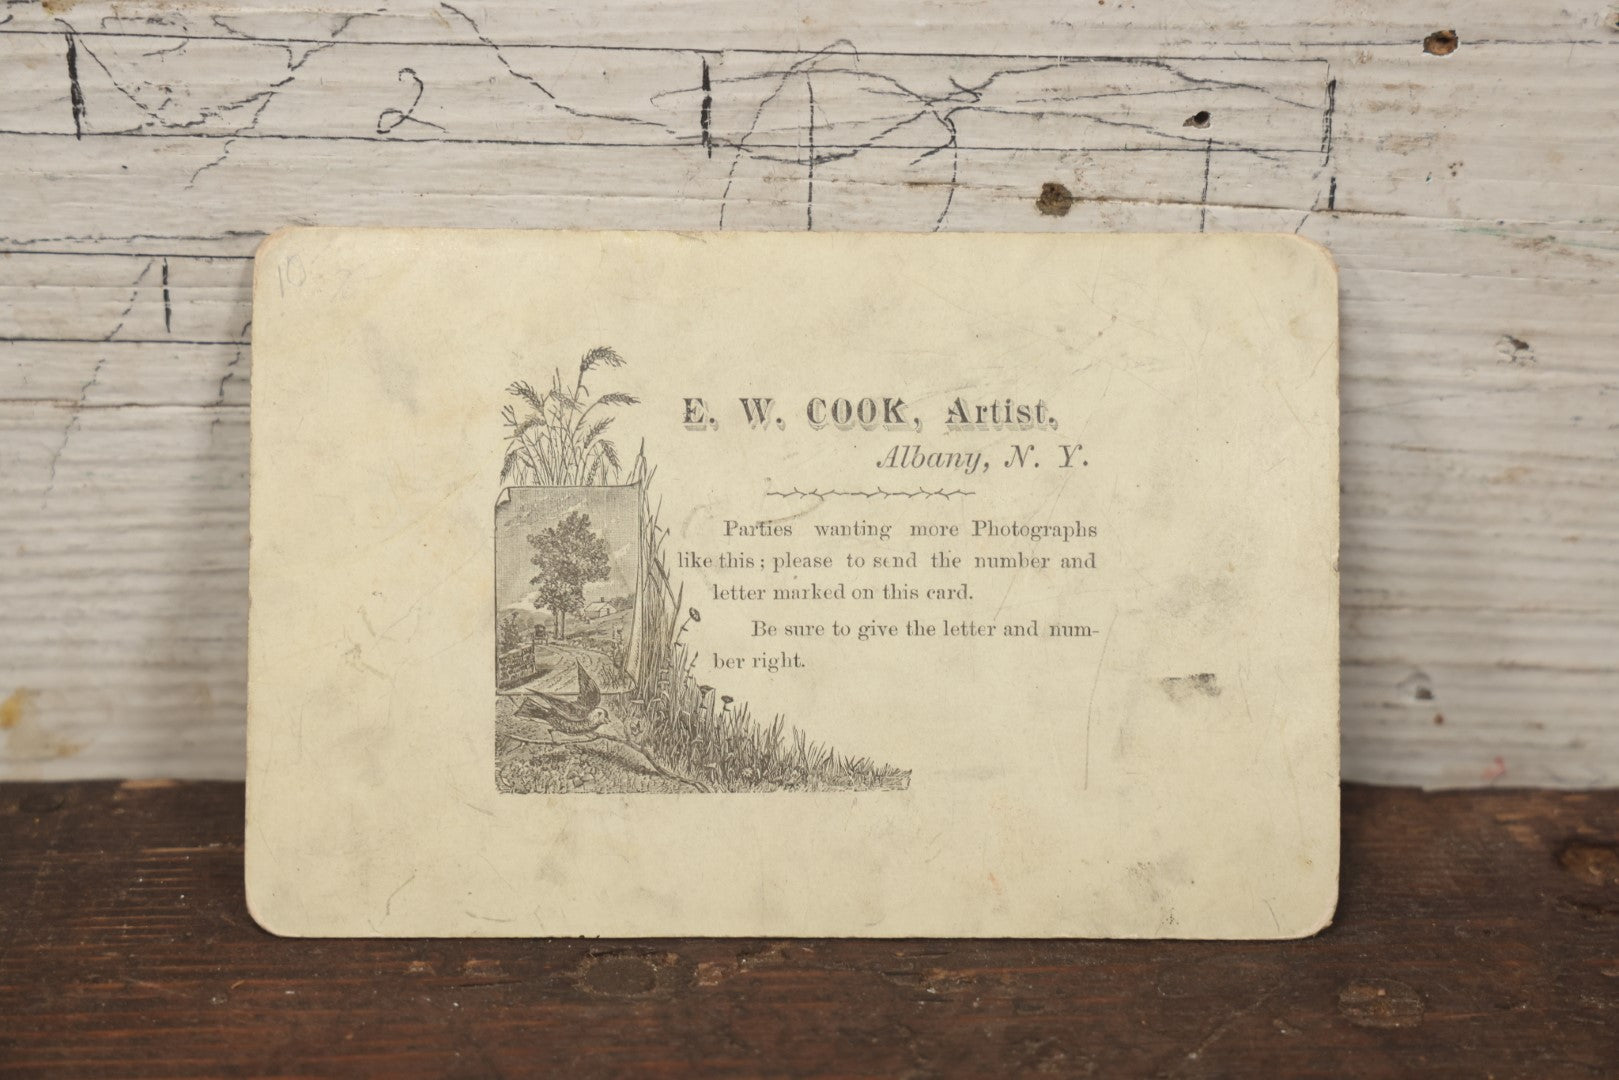 2
10
E. W. COOK, Artist.
Albany, N. Y.
Parties wanting more Photographs
like this; please to send the number and
letter marked on this card.
Be sure to give the letter and num-
ber right.